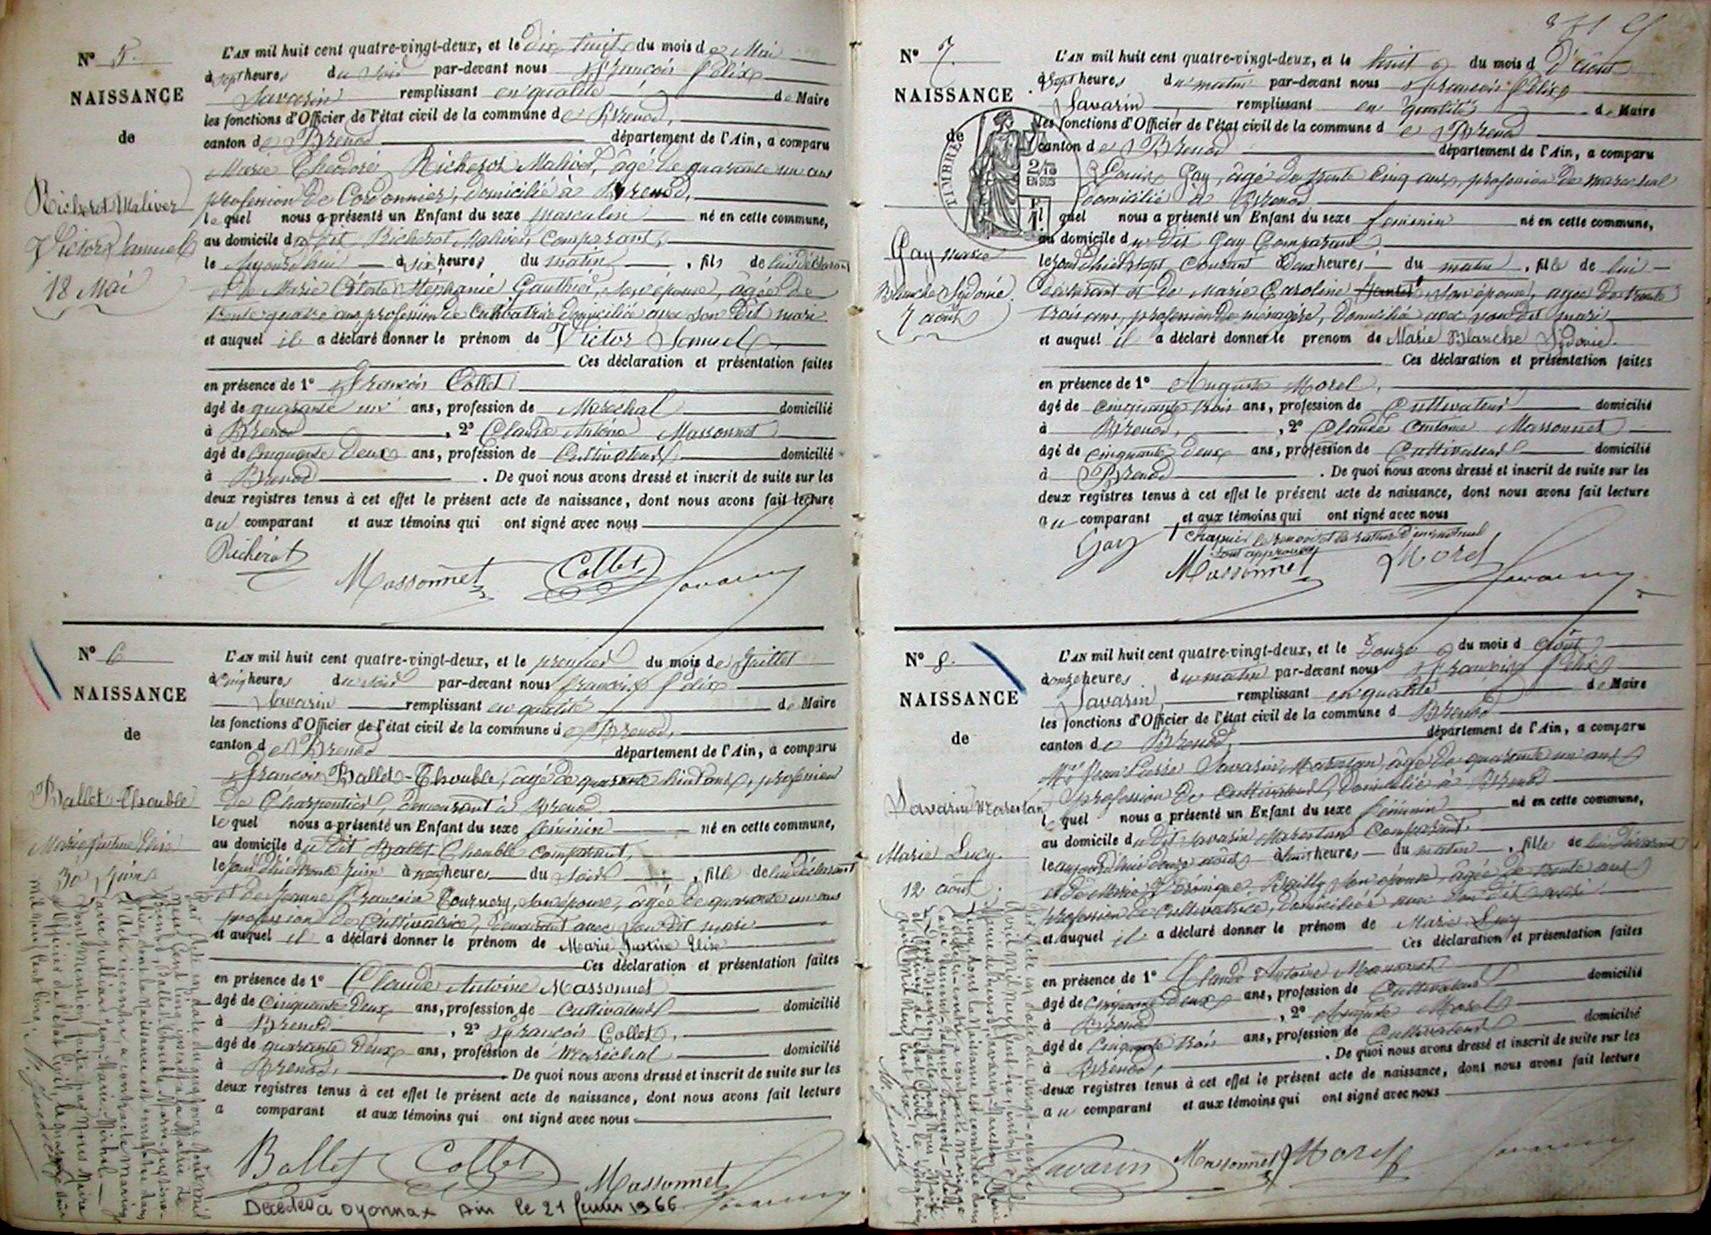 N° 5.
NAISSANCE
de
Richerot Maliver
Victor Samuel
18 Mai
L'AN mil huit cent quatre-vingt-deux, et le dix huit du mois de Mai
à sept heures du soir par-devant nous François Félix
Savarin remplissant en qualité de Maire
les fonctions d'Officier de l'état civil de la commune de Brenod,
canton de Brenod département de l'Ain, a comparu
Marie Théodore Richerot Maliver, âgé de quarante un ans
profession de Cordonnier, domicilié à Brenod,
lequel nous a présenté un Enfant du sexe masculin né en cette commune,
au domicile du dit Richerot Maliver, comparant,
le aujourd'hui à six heures du matin, fils de lui déclarant
et de Marie Céleste Stéphanie Gauthier, son épouse, âgée de
trente quatre ans profession de Cultivatrice domiciliée avec son dit mari
et auquel il a déclaré donner le prénom de Victor Samuel
Ces déclaration et présentation faites
en présence de 1° François Collet
âgé de quarante un ans, profession de Maréchal domicilié
à Brenod, 2° Claude Antoine Massonnet
âgé de cinquante deux ans, profession de Cultivateur domicilié
à Brenod. De quoi nous avons dressé et inscrit de suite sur les
deux registres tenus à cet effet le présent acte de naissance, dont nous avons fait lecture
au comparant et aux témoins qui ont signé avec nous
Richerot
Massonnet Collet Savarin
N° 6
NAISSANCE
de
Ballet-Thouble
Marie Justine Elise
30 Juin
L'AN mil huit cent quatre-vingt-deux, et le premier du mois de Juillet
à cinq heures du soir par-devant nous François Félix
Savarin remplissant en qualité de Maire
les fonctions d'Officier de l'état civil de la commune de Brenod,
canton de Brenod département de l'Ain, a comparu
François Ballet-Thouble, âgé de quarante huit ans, profession
de Charpentier, demeurant à Brenod
lequel nous a présenté un Enfant du sexe féminin né en cette commune,
au domicile du dit Ballet Thouble comparant,
le jour d'hier trente Juin à neuf heures du soir, fille de lui déclarant
et de Jeanne Françoise Tournery, son épouse, âgée de quarante un ans
profession de Cultivatrice, demeurant avec son dit mari
et auquel il a déclaré donner le prénom de Marie Justine Elise
Ces déclaration et présentation faites
en présence de 1° Claude Antoine Massonnet
âgé de Cinquante Deux ans, profession de Cultivateur domicilié
à Brenod, 2° François Collet,
âgé de quarante Deux ans, profession de Maréchal domicilié
à Brenod, De quoi nous avons dressé et inscrit de suite sur les
deux registres tenus à cet effet le présent acte de naissance, dont nous avons fait lecture
a comparant et aux témoins qui ont signé avec nous
Ballet Collet Massonnet
Savarin
Décédée à Oyonnax Ain le 21 1966
N° 7.
NAISSANCE
de
TIMBRE
2/10 EN SUS
Gay Marie
Blanche Sydonie
7 août
L'AN mil huit cent quatre-vingt-deux, et le huit du mois d'août
à sept heures du matin par-devant nous François Félix
Savarin remplissant en qualité de Maire
les fonctions d'Officier de l'état civil de la commune de Brenod
canton de Brenod département de l'Ain, a comparu
Louis Gay, âgé de trente cinq ans, profession de maréchal
domicilié à Brenod
quel nous a présenté un Enfant du sexe féminin né en cette commune,
au domicile du dit Gay Comparant
le jour d'hier sept courant à deux heures du matin, fille de lui
déclarant et de Marie Caroline son épouse, âgée de trente
trois ans, profession de ménagère, domiciliée avec son dit mari
et auquel il a déclaré donner le prénom de Marie Blanche Sydonie.
Ces déclaration et présentation faites
en présence de 1° Auguste Morel,
âgé de cinquante trois ans, profession de Cultivateur domicilié
à Brenod, 2° Claude Antoine Massonnet
âgé de cinquante deux ans, profession de Cultivateur domicilié
à Brenod. De quoi nous avons dressé et inscrit de suite sur les
deux registres tenus à cet effet le présent acte de naissance, dont nous avons fait lecture
au comparant et aux témoins qui ont signé avec nous
Gay
Massonnet Morel Savarin
N° 8.
NAISSANCE
de
Savarin Marestan
Marie Lucy.
12 août.
L'AN mil huit cent quatre-vingt-deux, et le Douze du mois d'août
à onze heures du matin par-devant nous François Félix
Savarin, remplissant en qualité de Maire
les fonctions d'Officier de l'état civil de la commune d Brenod
canton de Brenod, département de l'Ain, a comparu
Jean Pierre Savarin Marestan, âgé de quarante un ans
profession de Cultivateur, domicilié à Brenod
lequel nous a présenté un Enfant du sexe féminin né en cette commune,
au domicile du dit Savarin Marestan Comparant,
le aujourd'hui douze août à huit heures du matin, fille de lui déclarant
et de Marie Véronique Brailly son épouse, âgée de trente ans
profession de Cultivatrice, domiciliée avec son dit mari
et auquel il a déclaré donner le prénom de Marie Lucy
Ces déclaration et présentation faites
en présence de 1° Claude Antoine Massonnet
âgé de Cinquante Deux ans, profession de Cultivateur domicilié
à Brenod, 2° Auguste Morel
âgé de Cinquante trois ans, profession de Cultivateur domicilié
à Brenod, De quoi nous avons dressé et inscrit de suite sur les
deux registres tenus à cet effet le présent acte de naissance, dont nous avons fait lecture
au comparant et aux témoins qui ont signé avec nous
Savarin Massonnet Morel Savarin